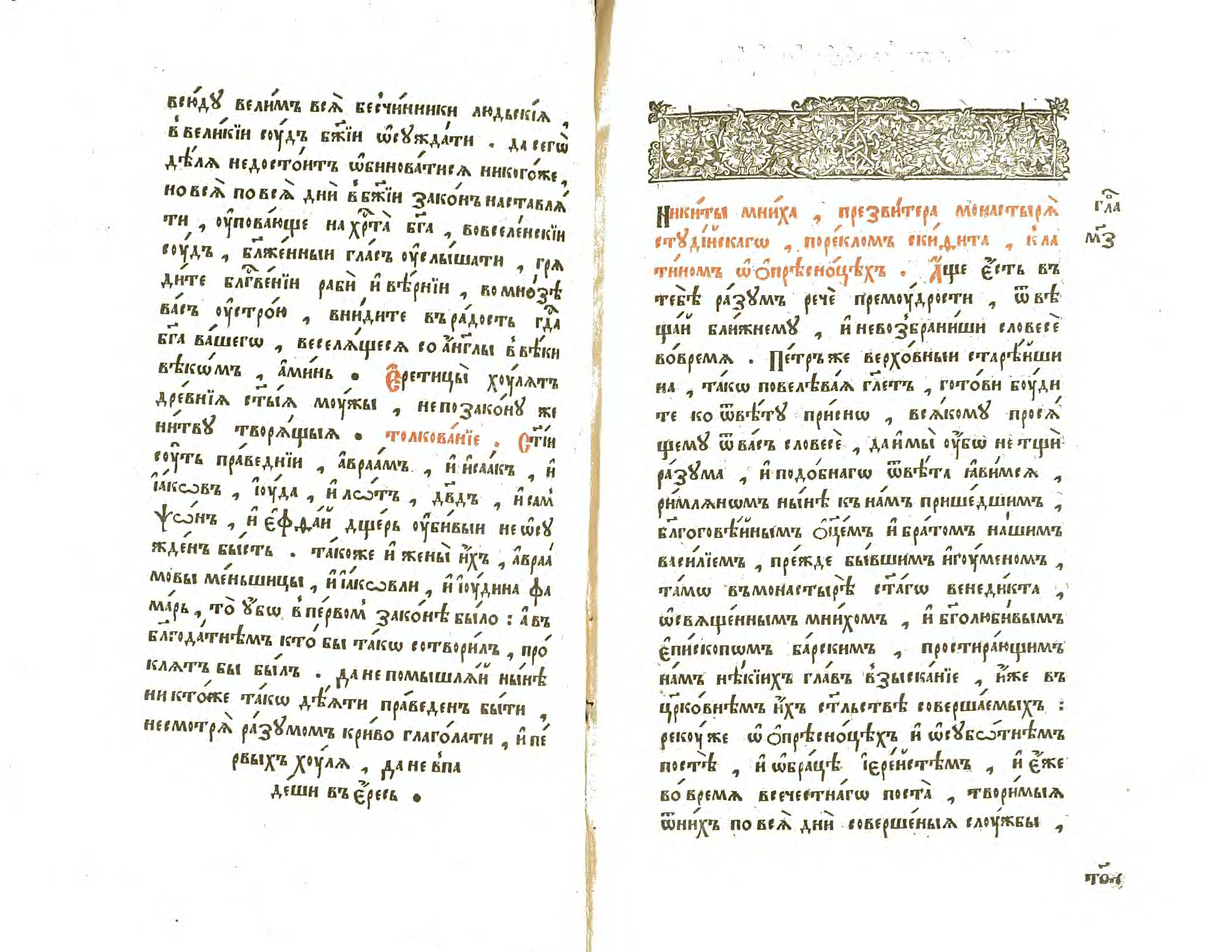 всю́дꙋ велимъ всѧ̀ бесчи́нники люⷣскі́ѧ ,
в̾вели́кїи сꙋ́дъ бж҃їи ѡ҆сꙋжда́ти . да сегѡ̀
дѣ́лѧ недосто́итъ ѡ҆бинова́тисѧ никого́же ,
но всѧ̀ по всѧ̀ дни̑ в̾бж҃їи зако́нъ наставлѧ́
ти , оу҆пова́юще на хрⷭ҇та̀ бг҃а , вовселе́нскїи
соу́дъ , бл҃же́нныи гла́съ оу҆слы́шати , грѧ
ди́те блгⷭ҇ве́нїи раби̑ и҆ вѣ́рнїи , во мно́зѣ
ва́съ оу҆стро́ю , вни́дите въ ра́дость гдⷭ҇а
бг҃а ва́шегѡ , веселѧ́щесѧ со а҆́нг҃лы в̾ вѣ́ки
вѣкѡ́мъ , а҆ми́нь . Є҆ретицы̀ хоу́лѧтъ
дре́внїѧ ст҃ы́ѧ моу́жы , не по зако́нꙋ же
ни́твꙋ творѧ́щыѧ . толкова́нїе . Ст҃і́и
соу́ть пра́веднїи , а҆враа́мъ , и҆ и҆саа́къ , и҆
і҆а́кѡвъ , і҆ю́да , и҆ лѡ́тъ , дв҃дъ , и҆ сам̾
ѱѡ́нъ , и҆ є҆ѳѳа́й дще́рь оу҆би́выи не ѡ҆сꙋ
жде́нъ бы́сть . та́коже и҆ жены̀ и҆́хъ , а҆враа́
мовы ме́ньшицы , и҆ і҆а́кѡвли , и҆ і҆ю́дина ѳа
ма́рь , то̀ ᲂу҆́бѡ в̾ пе́рвом̾ зако́нѣ бы́ло : а҆ въ
бл҃года́тнѣмъ кто́ бы та́кѡ сотвори́лъ , про́
клѧтъ бы бы́лъ . да не помышлѧ́й ны́нѣ
ни кто́же та́кѡ дѣ́ѧти пра́веденъ бы́ти ,
несмотрѧ̀ ра́зꙋмомъ кри́во глаго́лати , и҆ пе́
рвыхъ хоу́лѧ , да не в̾па
деши въ є҆́ресь .
Ники́ты мни́ха , презви́тера монастырѧ̀
стꙋді́йскагѡ , пореклом̾ ски́дита , к̾ ла
ти́номъ ѡ҆ ѻ҆прѣсно́цѣхъ . А҆́ще є҆́сть въ
тебѣ̀ ра́зꙋмъ речѐ премоу́дрости , ѿвѣ
ща́й бли́жнемꙋ , и҆ невозбрани́ши словесѐ
во́время . Пе́тръ же верхо́вныи старѣ́йши
на , та́кѡ повелѣва́ѧ гл҃етъ , гото́ви боу́ди
те ко ѿвѣ́тꙋ при́снѡ , всѧ́комꙋ просѧ́
щемꙋ ѿ ва́съ словесѐ , да и҆ мы̀ оу҆́бѡ не тщи̑
ра́зꙋма , и҆ подо́бнагѡ ѿвѣ́та ꙗ҆ви́мсѧ ,
ри́млѧнѡмъ ны́нѣ къ на́мъ прише́дшимъ ,
бл҃гоговѣ́йнымъ ѻ҆ц҃е́мъ и҆ бра́томъ на́шимъ
васи́лїемъ , пре́жде бы́вшимъ и҆гоу́меномъ ,
та́мѡ въ монастырѣ̀ ст҃а́гѡ венеди́кта ,
ѡ҆свѧще́ннымъ мни́хомъ , и҆ бг҃олюби́вымъ
є҆пи́скопѡмъ ба́рскимъ , простира́ющимъ
на́мъ нѣ́кїихъ гла́въ взыска́нїе , и҆́же въ
цр҃ко́внѣмъ и҆́хъ ст҃льствѣ соверша́емыхъ :
рекоу́ же ѡ҆ ѻ҆прѣсно́цѣхъ и҆ ѡ҆ сꙋбѡ́тнѣмъ
постѣ̀ , и҆ ѡ҆ бра́цѣ і҆ере́йстѣмъ , и҆ є҆́же
во́ время всечестна́гѡ поста̀ , твори́мыѧ
ѿ ни́хъ по всѧ̀ дни̑ соверше́ныѧ слоу́жбы ,
гла̑
м҃з